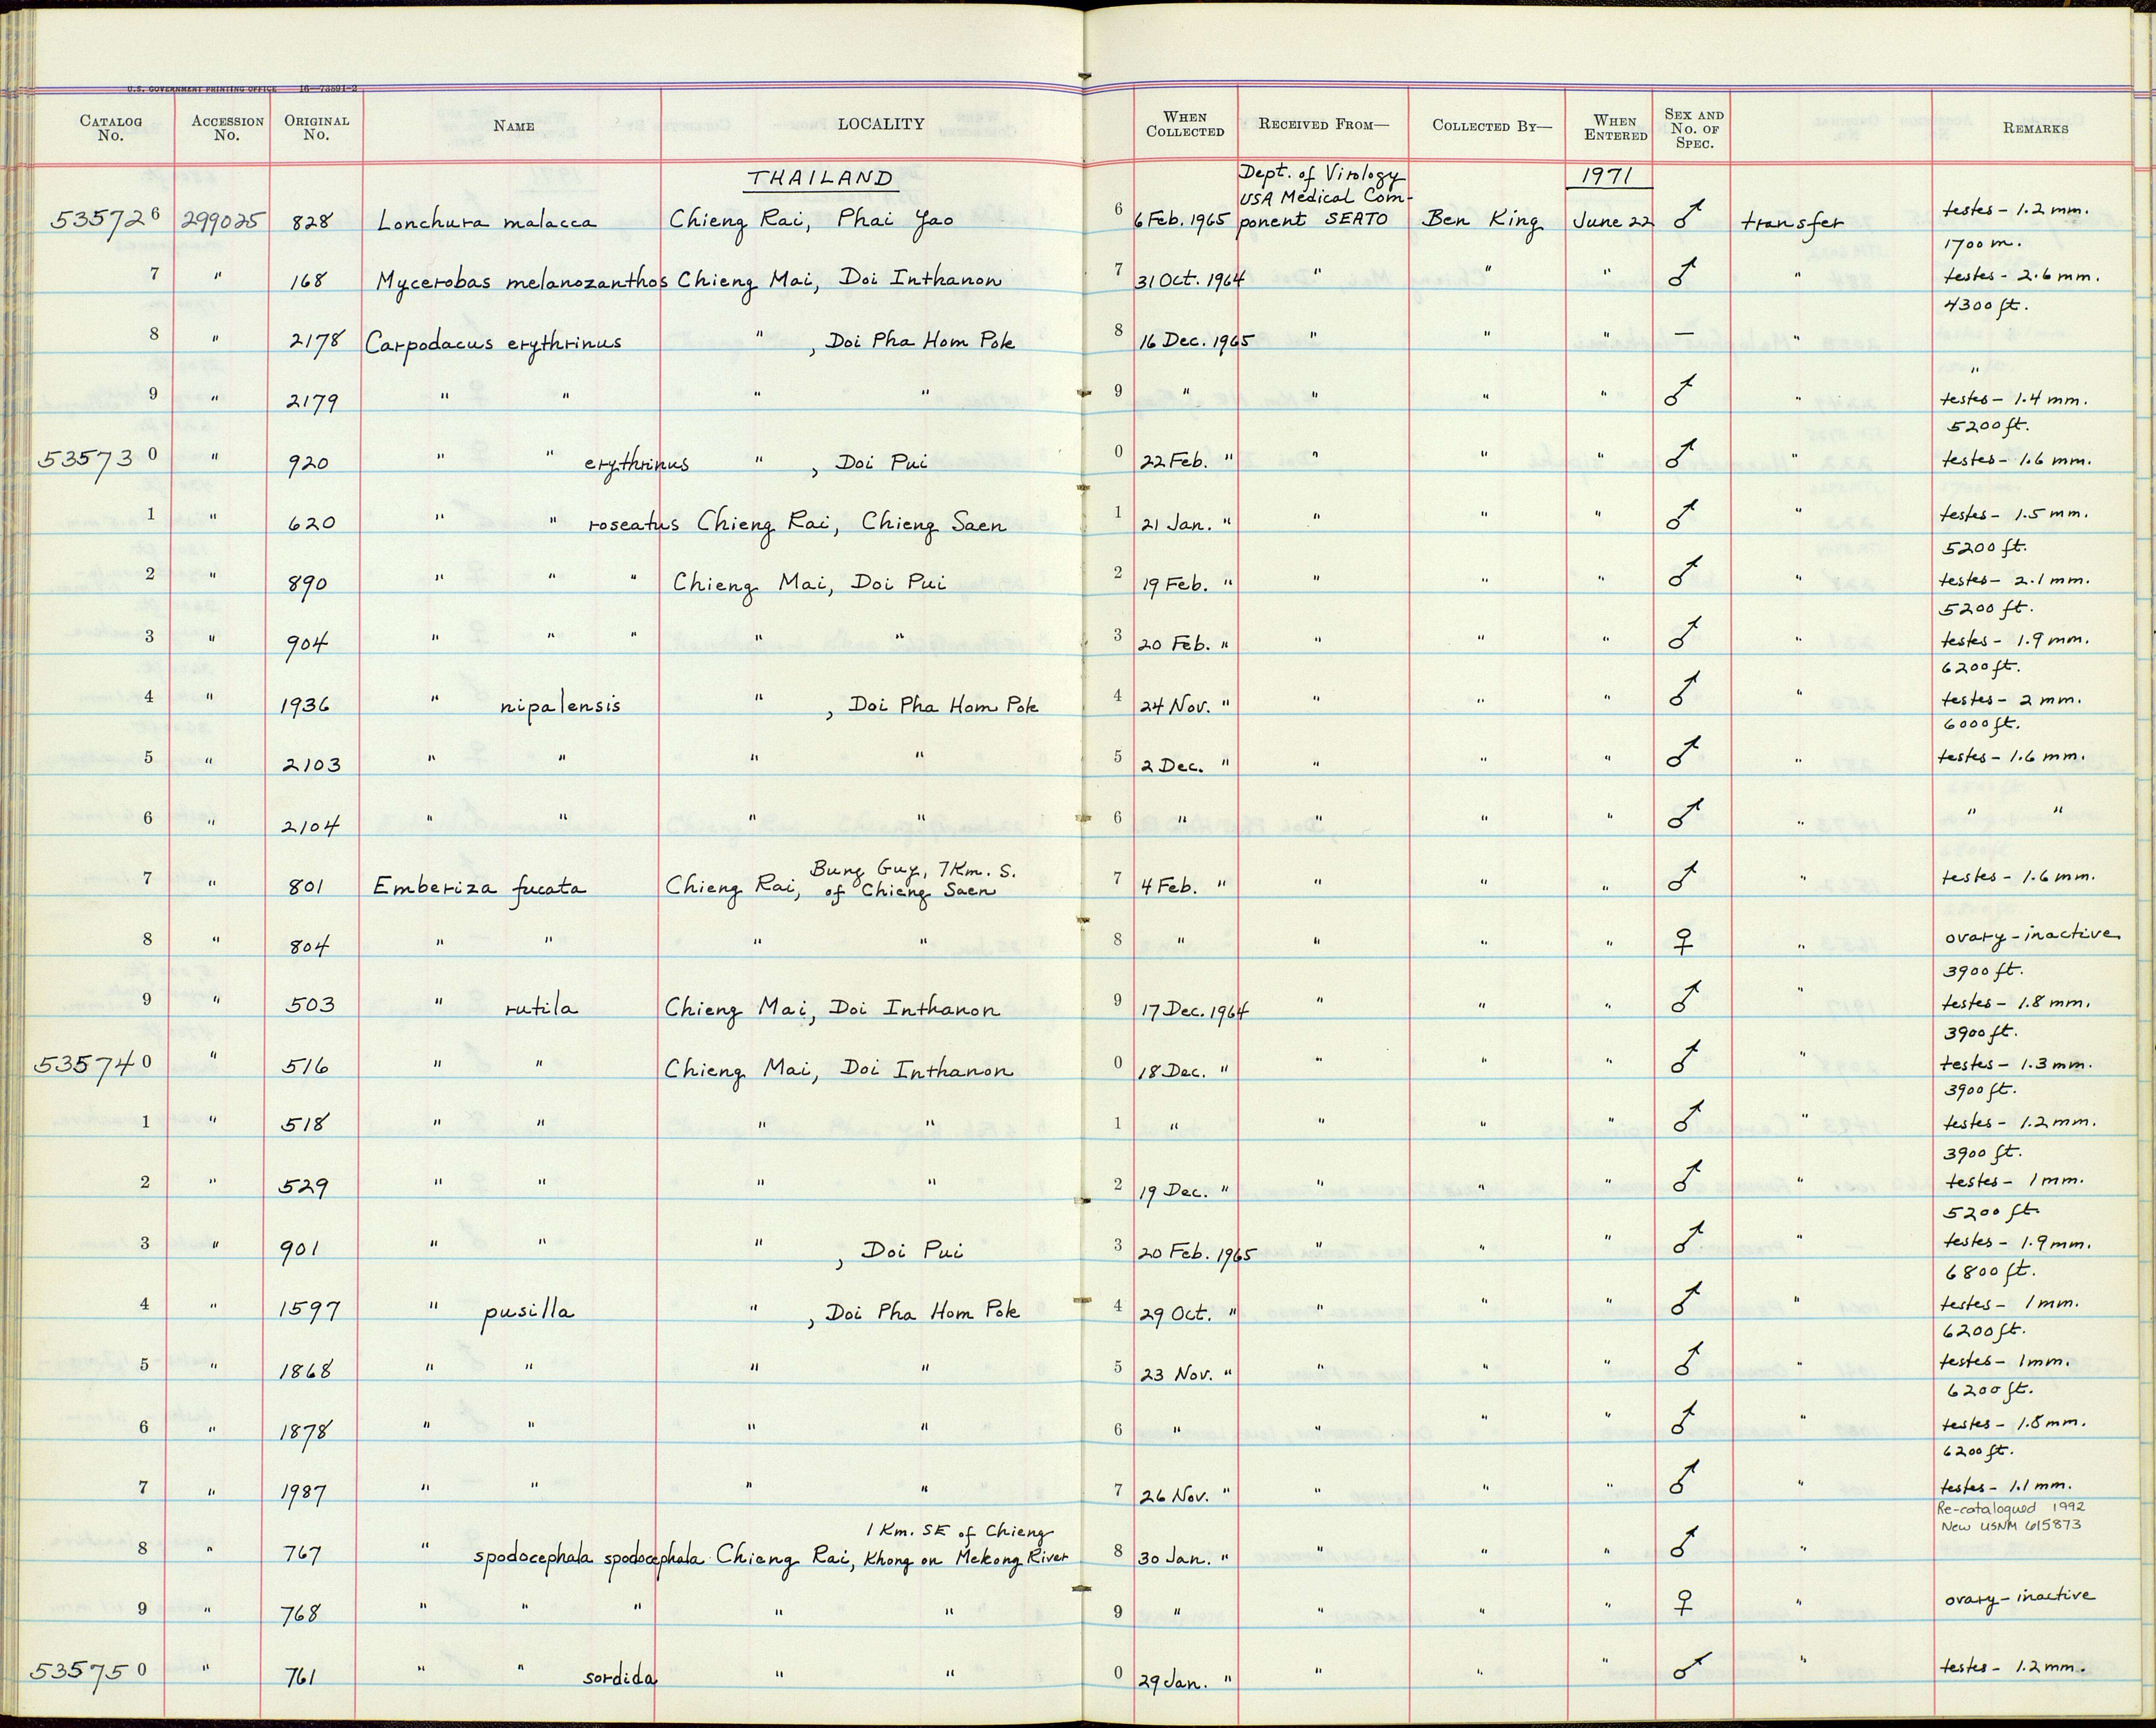 U.S. GOVERNMENT PRINTING OFFICE 16—73591-2
CATALOG No. ACCESSION No. ORIGINAL No. NAME LOCALITY WHEN COLLECTED RECEIVED FROM— COLLECTED BY— WHEN ENTERED SEX AND No. OF SPEC. REMARKS
THAILAND Dept. of Virology 1971
USA Medical Com-
535726 299025 828 Lonchura malacca Chieng Rai, Phai Yao 6 6 Feb. 1965 ponent SEATO Ben King June 22 ♂ transfer testes - 1.2 mm.
1700 m.
7 " 168 Mycerobas melanozanthos Chieng Mai, Doi Inthanon 7 31 Oct. 1964 " " " ♂ " testes - 2.6 mm.
4300 ft.
8 " 2178 Carpodacus erythrinus " , Doi Pha Hom Pok 8 16 Dec. 1965 " " " — "
"
9 " 2179 " " " " 9 " " " " ♂ " testes - 1.4 mm.
5200 ft.
535730 " 920 " " erythrinus " , Doi Pui 0 22 Feb. " " " " ♂ " testes - 1.6 mm.
1 " 620 " " roseatus Chieng Rai, Chieng Saen 1 21 Jan. " " " " ♂ " testes - 1.5 mm.
5200 ft.
2 " 890 " " " Chieng Mai, Doi Pui 2 19 Feb. " " " " ♂ " testes - 2.1 mm.
5200 ft.
3 " 904 " " " " " 3 20 Feb. " " " " ♂ " testes - 1.9 mm.
6200 ft.
4 " 1936 " nipalensis " , Doi Pha Hom Pok 4 24 Nov. " " " " ♂ " testes - 2 mm.
6000 ft.
5 " 2103 " " " " 5 2 Dec. " " " " ♂ " testes - 1.6 mm.
6 " 2104 " " " " 6 " " " " ♂ " " "
Bung Guy, 7 Km. S.
7 " 801 Emberiza fucata Chieng Rai, of Chieng Saen 7 4 Feb. " " " " ♂ " testes - 1.6 mm.
8 " 804 " " " " 8 " " " " ♀ " ovary - inactive
3900 ft.
9 " 503 " rutila Chieng Mai, Doi Inthanon 9 17 Dec. 1964 " " " ♂ " testes - 1.8 mm.
3900 ft.
535740 " 516 " " Chieng Mai, Doi Inthanon 0 18 Dec. " " " " ♂ " testes - 1.3 mm.
3900 ft.
1 " 518 " " " " 1 " " " " ♂ " testes - 1.2 mm.
3900 ft.
2 " 529 " " " " 2 19 Dec. " " " " ♂ " testes - 1 mm.
5200 ft.
3 " 901 " " " , Doi Pui 3 20 Feb. 1965 " " " ♂ " testes - 1.9 mm.
6800 ft.
4 " 1597 " pusilla " , Doi Pha Hom Pok 4 29 Oct. " " " " ♂ " testes - 1 mm.
6200 ft.
5 " 1868 " " " " 5 23 Nov. " " " " ♂ " testes - 1 mm.
6200 ft.
6 " 1878 " " " " 6 " " " " ♂ " testes - 1.8 mm.
6200 ft.
7 " 1987 " " " " 7 26 Nov. " " " " ♂ " testes - 1.1 mm.
Re-catalogued 1992
1 Km. SE of Chieng New USNM 615873
8 " 767 " spodocephala spodocephala Chieng Rai, Khong on Mekong River 8 30 Jan. " " " " ♂ "
9 " 768 " " " " " 9 " " " " ♀ " ovary - inactive
535750 " 761 " " sordida " " 0 29 Jan. " " " " ♂ " testes - 1.2 mm.